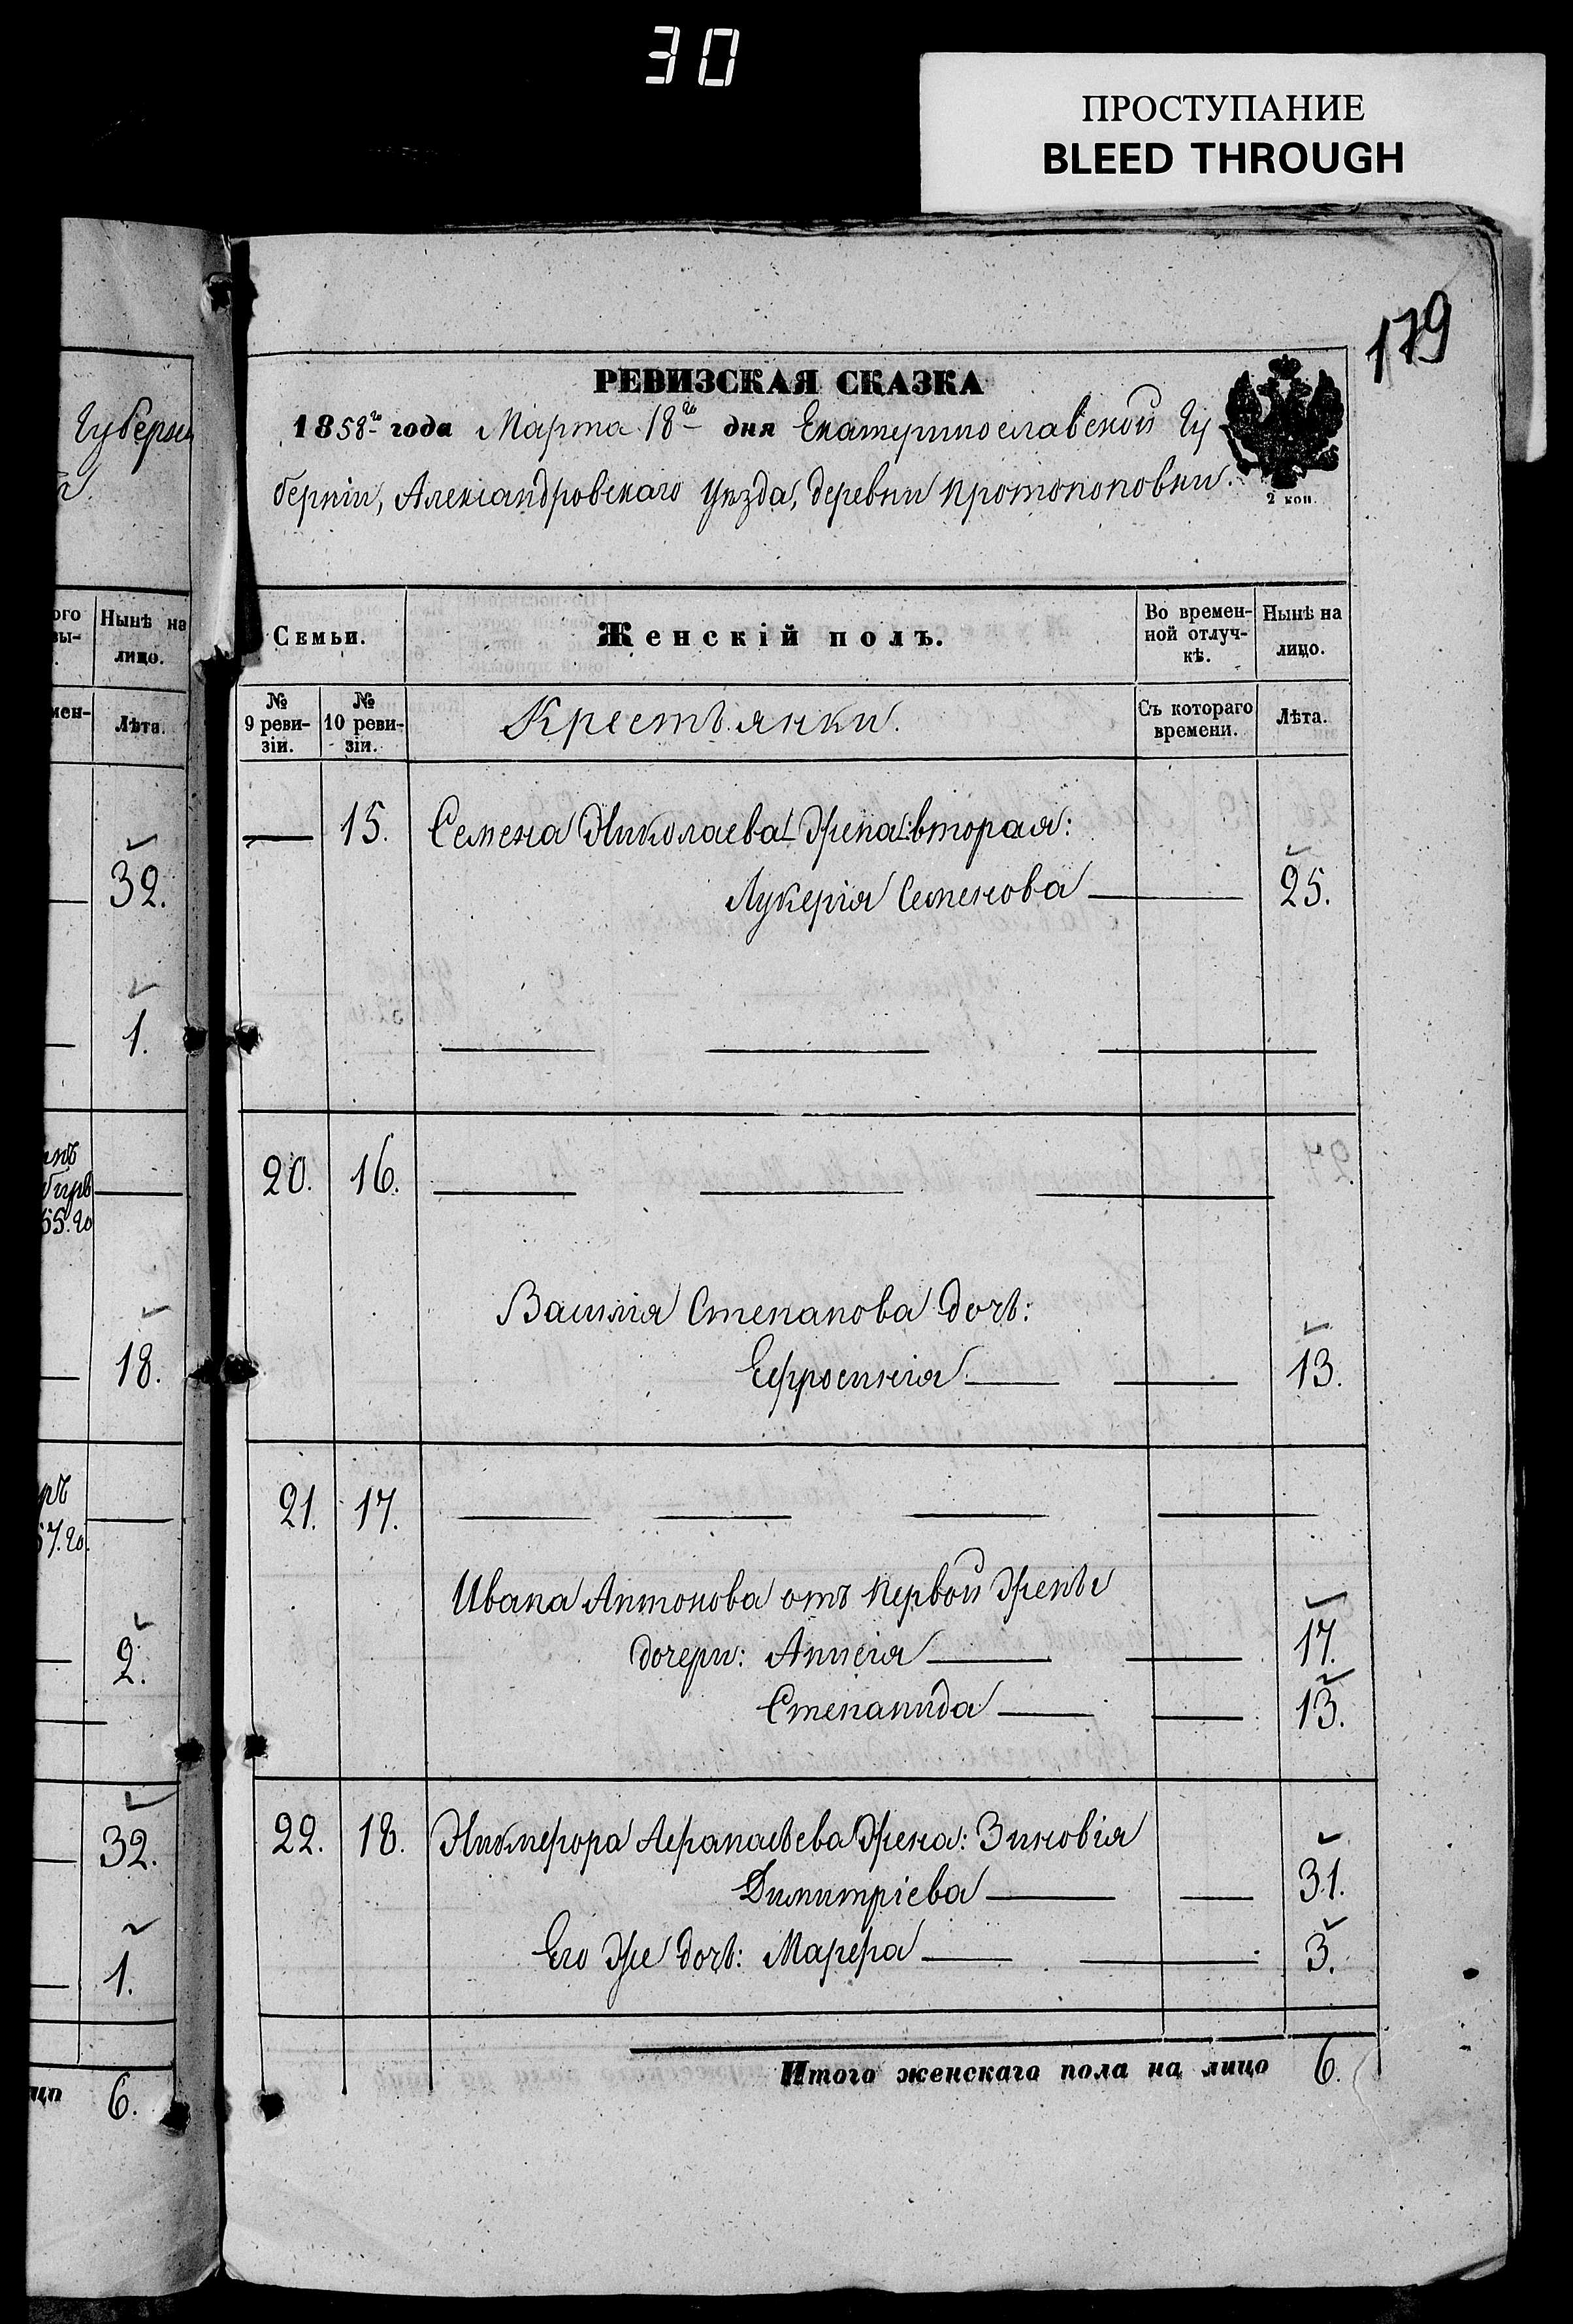 30
ПРОСТУПАНИЕ
BLEED THROUGH
179
РЕВИЗСКАЯ СКАЗКА
1858го года Марта 18го дня Екатеринославской Гу-
берніи, Александровскаго уѣзда, деревни Протопоповки.
2 коп.
Губерн
ого Нынѣ на
вы- лицо.
мен- Лѣта.
Семьи. Женскій полъ. Во времен-ной отлуч-кѣ. Нынѣ на лицо.
№ 9 реви-зіи. № 10 реви-зіи. Крестьянки. Съ котораго времени. Лѣта.
— 15. Семена Николаева жена вторая:
Лукерія Семенова — 25.
20. 16.
Василія Степанова дочь:
Ефросинія — 13.
21. 17.
Ивана Антонова отъ первой жены
дочери: Аннсія — 17.
Степанида — 13.
22. 18. Никифора Афанасьева жена: Зиновія
Димитріева — 31.
Его же дочь: Марфа — 3.
Итого женскаго пола на лицо 6.
32.
1.
55.го
18.
57.го
2.
32.
1.
6.